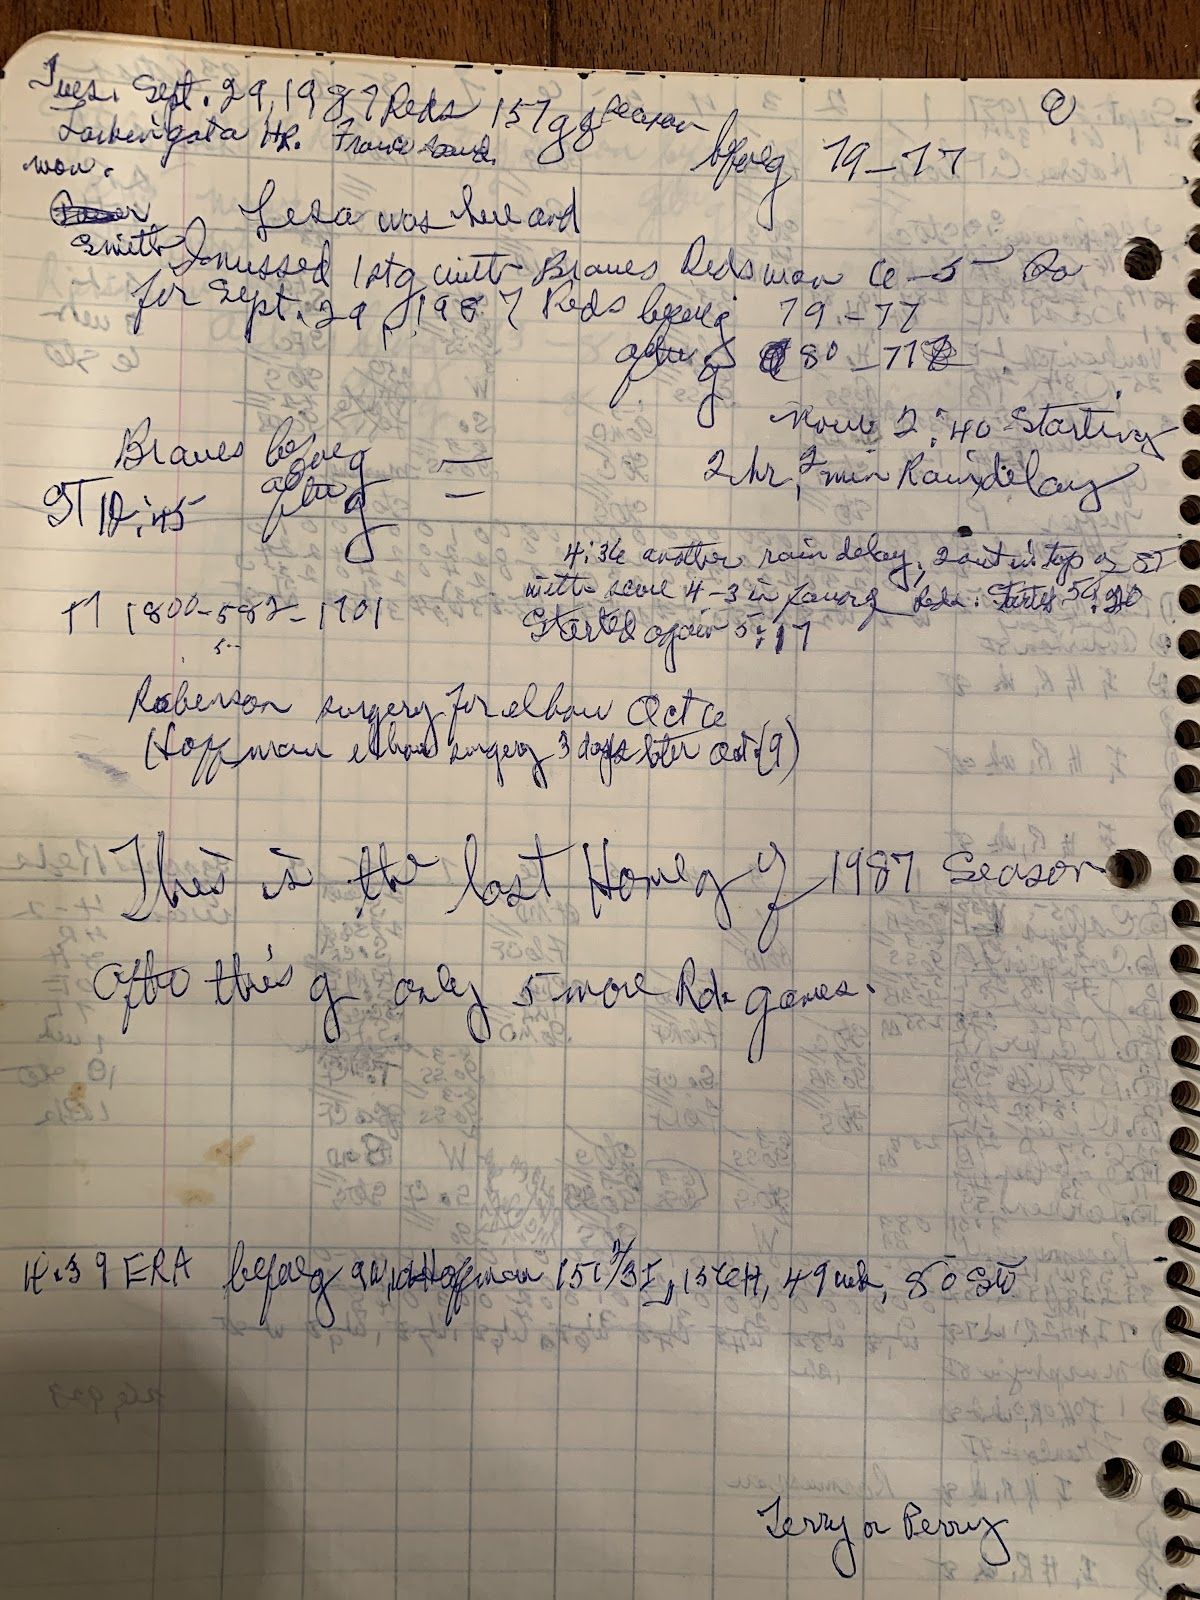 Tues. Sept. 29, 1987 Reds 157 g g season
HR. Franco
won.
beforeg 79-77
Lesa was here and
Smith I missed 1st g with Braves Reds won 6-5
for Sept. 29, 1987 Reds beforeg 79-77
after g 80-77
Now 2:40 Starting
2 hr, 2 min Rain, delay
Braves beforeg —
after g —
ST 12:45
4:36 another rain delay, 2 out in top of 5I
with score 4-3 in favor of Reds. Starts 5:20
Started again 5:17
TT 1800-582-1701
5--
Roberson surgery for elbow Oct 6
(Hoffman elbow surgery 3 days later Oct. (9)
This is the last Home g of 1987 Season
After this g only 5 more Rds games.
4.39 ERA beforeg 9W, 10 Hoffman 156 2/3 I, 156H, 49 wk, 80 SO
Terry or Perry